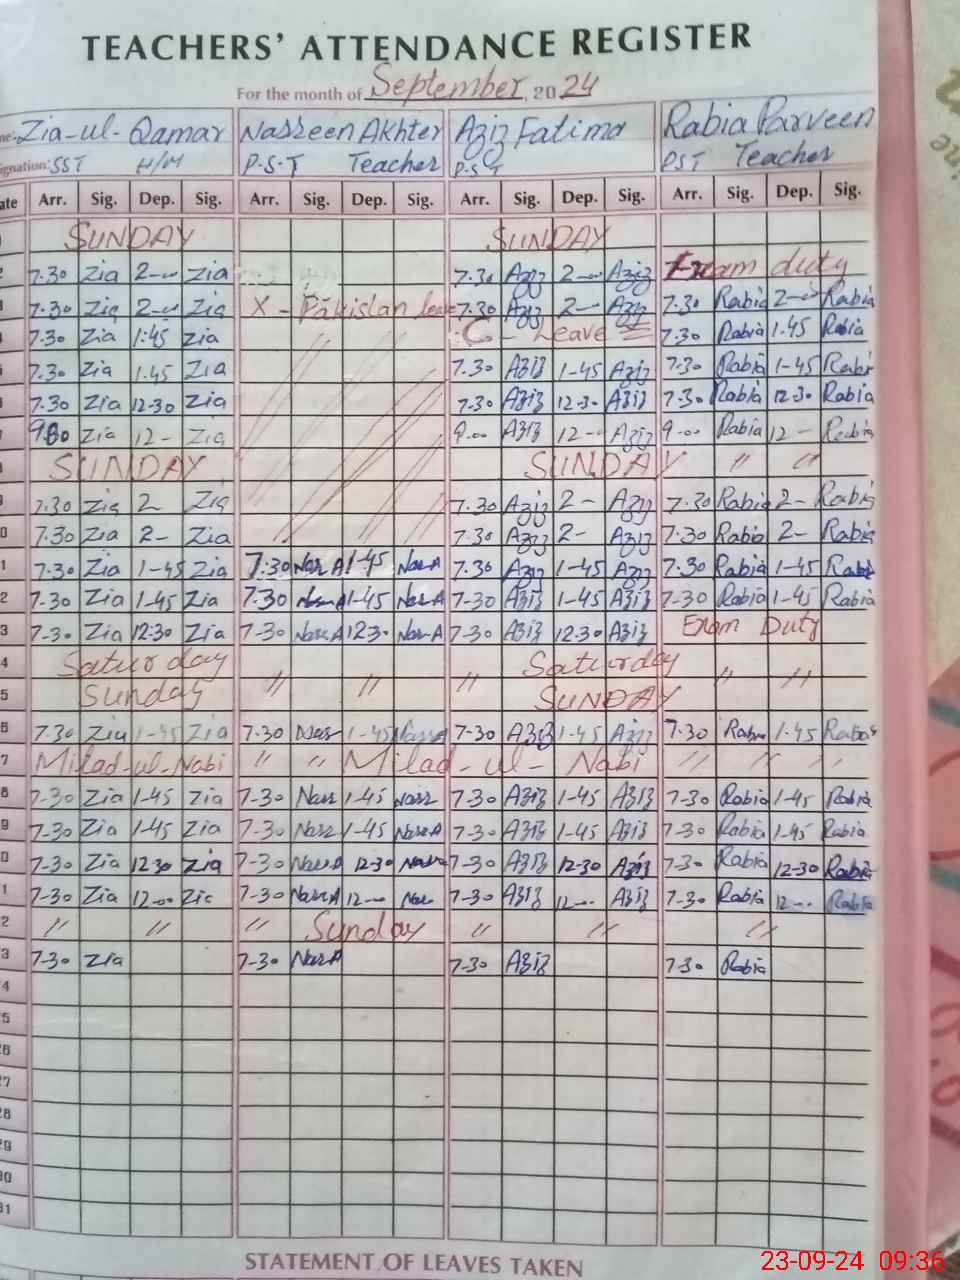 TEACHERS' ATTENDANCE REGISTER
For the month of September, 2024
me: Zia-ul-Qamar Nasreen Akhter Aziz Fatima Rabia Parveen
ignation: SST H/M P.S.T Teacher P.S.T PST Teacher
ate Arr. Sig. Dep. Sig. Arr. Sig. Dep. Sig. Arr. Sig. Dep. Sig. Arr. Sig. Dep. Sig.
SUNDAY SUNDAY
2 7.30 Zia 2-00 Zia 7.30 Aziz 2-00 Aziz Exam duty
3 7.30 Zia 2-00 Zia X - Pakistan leave 7.30 Aziz 2- Aziz 7.30 Rabia 2-00 Rabia
7.30 Zia 1:45 Zia C- Leave 7.30 Rabia 1.45 Rabia
7.30 Zia 1.45 Zia 7.30 Aziz 1-45 Aziz 7.30 Rabia 1-45 Rabia
7.30 Zia 12-30 Zia 7.30 Aziz 12-30 Aziz 7.30 Rabia 12-30 Rabia
Zia 12- Zia 9.00 Aziz 12- Aziz 9.00 Rabia 12- Rabia
SUNDAY SUNDAY // //
7.30 Zia 2 Zia 7.30 Aziz 2- Aziz 7.30 Rabia 2- Rabia
0 7.30 Zia 2- Zia 7.30 Aziz 2- Aziz 7.30 Rabia 2- Rabia
1 7.30 Zia 1-45 Zia 7.30 Nas-A 1-45 Nas-A 7.30 Aziz 1-45 Aziz 7.30 Rabia 1-45 Rabia
2 7-30 Zia 1-45 Zia 7.30 Nas-A 1-45 Nas-A 7-30 Aziz 1-45 Aziz 7-30 Rabia 1-45 Rabia
3 7-30 Zia 12:30 Zia 7-30 Nas-A 12.30 Nas-A 7-30 Aziz 12.30 Aziz Exam Duty
4 Saturday Saturday
5 Sunday // // // SUNDAY // //
6 7.30 Zia 1-45 Zia 7.30 Nas 1-45 7-30 Aziz 1-45 Aziz 7.30 Rabia 1-45 Rabia
7 Milad-ul-Nabi // // Milad-ul-Nabi // // //
8 7-30 Zia 1-45 Zia 7-30 Nass 1-45 Nass 7-30 Aziz 1-45 Aziz 7-30 Rabia 1-45 Rabia
9 7-30 Zia 1-45 Zia 7-30 Nass 1-45 NassA 7-30 Aziz 1-45 Aziz 7-30 Rabia 1-45 Rabia
0 7-30 Zia 12-30 Zia 7-30 NassA 12-30 7-30 Aziz 12-30 Aziz 7-30 Rabia 12-30 Rabia
1 7-30 Zia 12-00 Zia 7-30 NassA 12-00 Nas 7-30 Aziz 12-- Aziz 7-30 Rabia 12-- Rabia
2 // // // Sunday // // //
3 7-30 Zia 7-30 NasA 7-30 Aziz 7-30 Rabia
4
5
26
27
28
29
30
31
STATEMENT OF LEAVES TAKEN
23-09-24 09:36